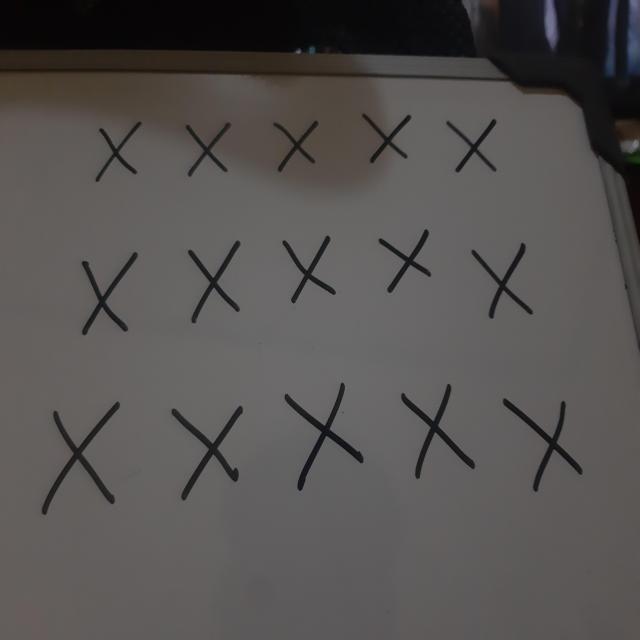 X X X X X
X X X X X
X X X X X